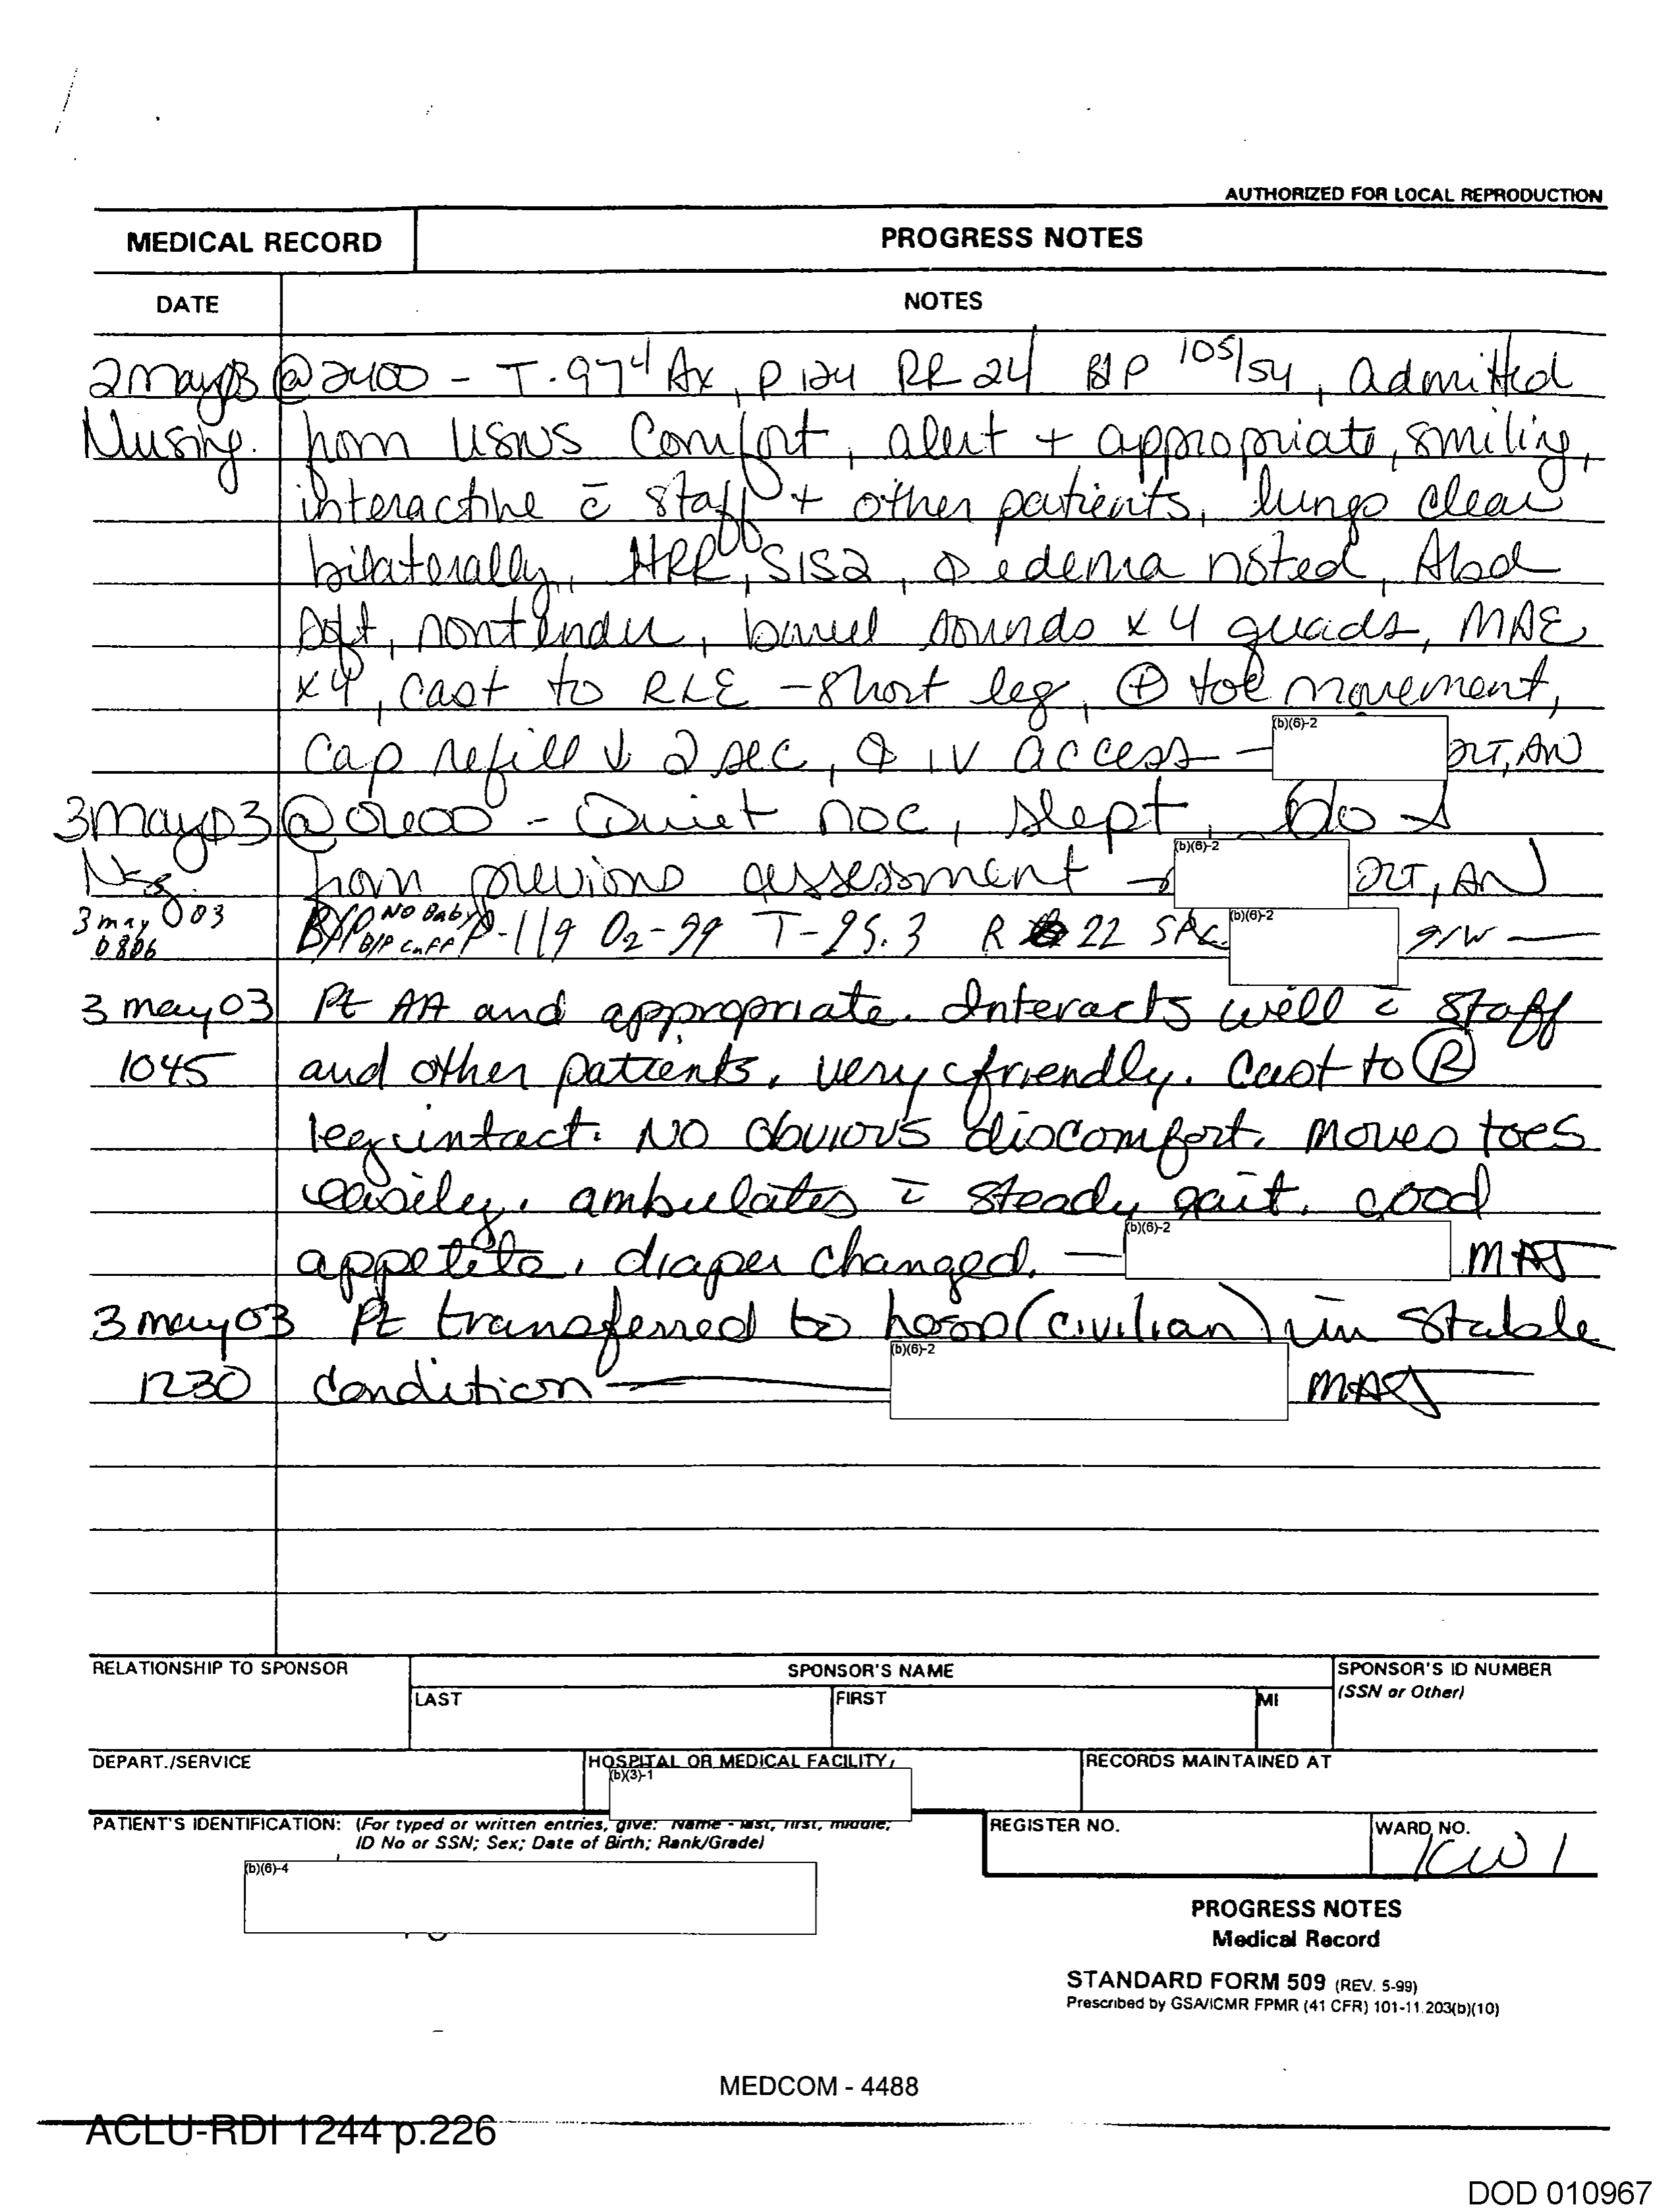 AUTHORIZED FOR LOCAL REPRODUCTION
MEDICAL RECORD PROGRESS NOTES
DATE NOTES
2 May 03 @ 2400 - T. 97⁴ Ax, P 124 RR 24 B/P 105/54, Admitted
Nursing. from USNS Comfort, alert + appropriate, smiling,
interactive c̄ staff + other patients, lungs clear
bilaterally, HRR, S1S2, ∅ edema noted, Abd
soft, nontender, bowel sounds x 4 quads, MAE
x4, cast to RLE - short leg, ⊕ toe movement,
cap refill ↓ 2 sec, ∅ IV access - (b)(6)-2 2LT, AN
3 May 03 @ 0600 - Quiet noc, slept, No Δ
Nsg. from previous assessment - (b)(6)-2 2LT, AN
3 may 03 B/P NO Baby B/P cuff P-119 O2-99 T-95.3 R 22 SPC. (b)(6)-2 91W
0806
3 may 03 Pt AA and appropriate. Interacts well c̄ staff
1045 and other patients, very friendly. Cast to Ⓡ
leg intact. NO obvious discomfort. moves toes
easily. ambulates c̄ steady gait. good
appetite. diaper changed. - (b)(6)-2 MAJ
3 may 03 Pt transferred to hosp (civilian) in stable
1230 condition - (b)(6)-2 MAJ
RELATIONSHIP TO SPONSOR SPONSOR'S NAME SPONSOR'S ID NUMBER
LAST FIRST MI (SSN or Other)
DEPART./SERVICE HOSPITAL OR MEDICAL FACILITY RECORDS MAINTAINED AT
(b)(3)-1
PATIENT'S IDENTIFICATION: (For typed or written entries, give: Name - last, first, middle; REGISTER NO. WARD NO.
ID No or SSN; Sex; Date of Birth; Rank/Grade) ICW 1
(b)(6)-4
PROGRESS NOTES
Medical Record
STANDARD FORM 509 (REV. 5-99)
Prescribed by GSA/ICMR FPMR (41 CFR) 101-11.203(b)(10)
MEDCOM - 4488
ACLU-RDI 1244 p.226
DOD 010967